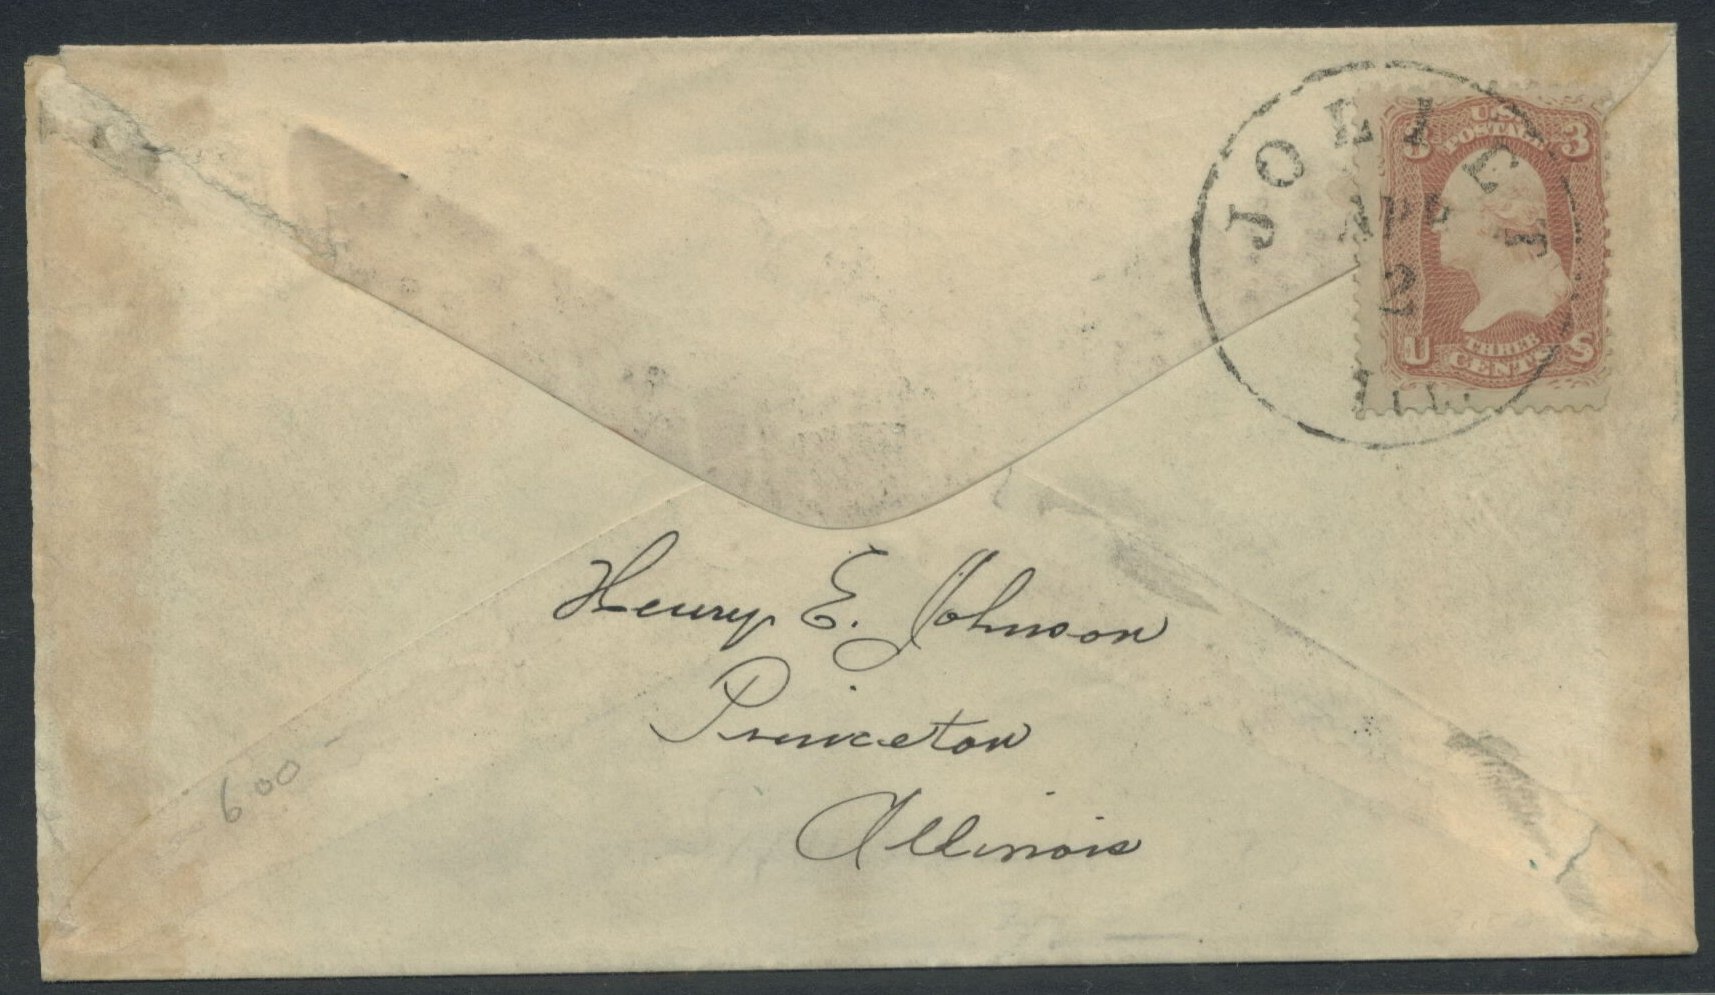 JOLIET
APR
2
ILL.
U.S.
POSTAGE
3 3
U THREE S
CENTS
Henry E. Johnson
Princeton
Illinois
6.00